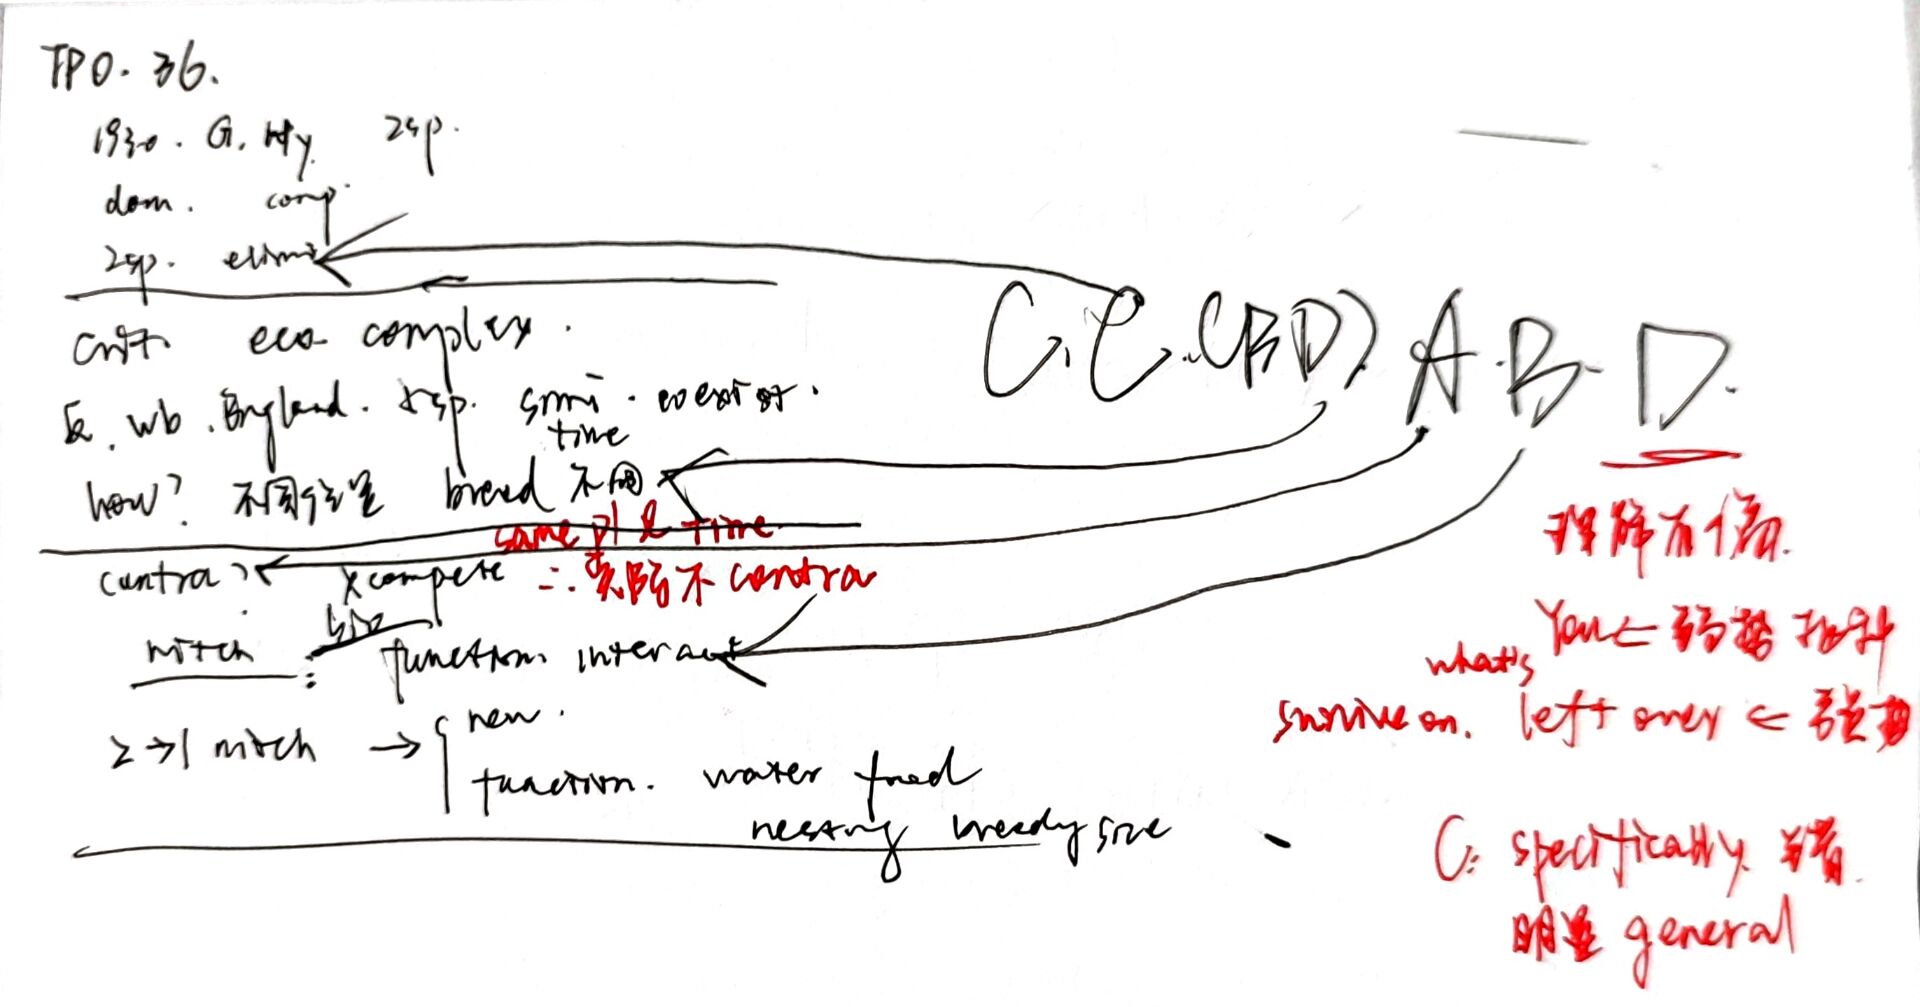 TPO. 36.
1930. G. 2sp.
dom. comp.
2sp. elimi
crit. eco complex.
wb. England. sp. simi. coexist.
time
how? 不同位置 breed 不同
same pl & time
contra? x compete ∴ 实际不 contra
nitch : function. interact
2→1 nitch → new.
function. water food
nesting breedy size
C. C. (BD) A. B. D.
理解有偏.
You ← 弱势
what's
survive on. left over ← 强势
C: specifically 错.
明显 general